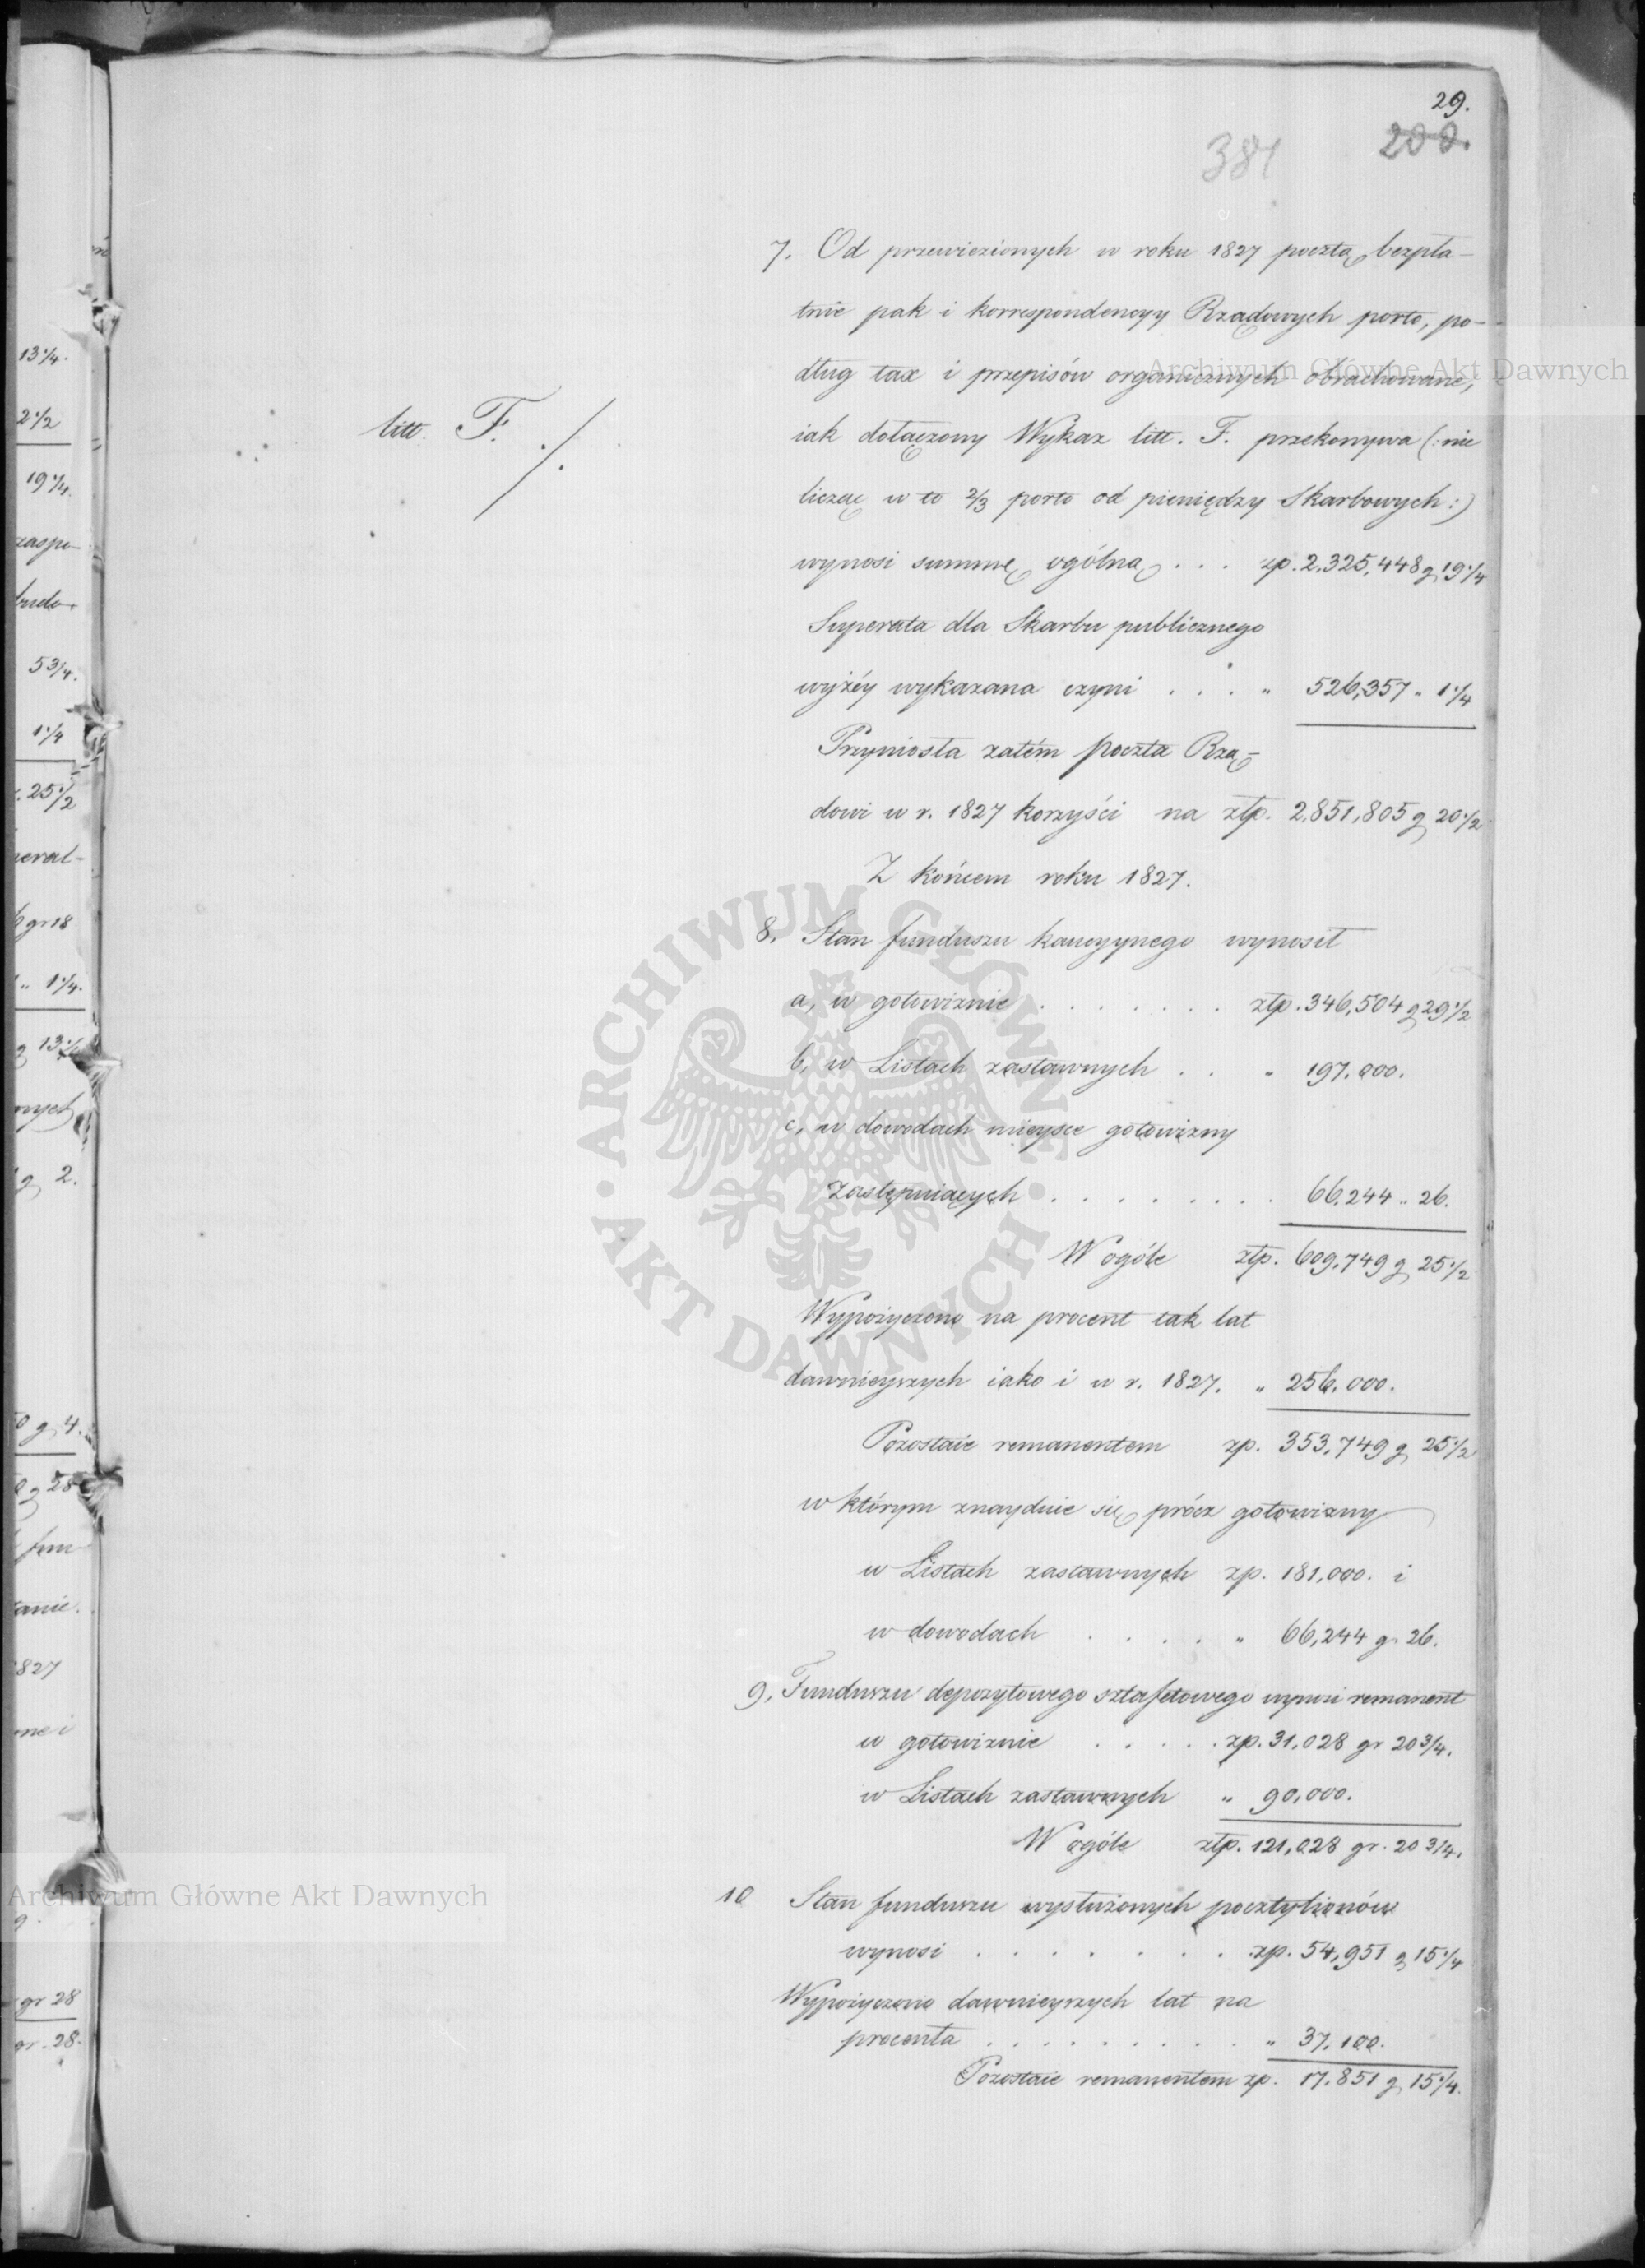 29.
200.
381
7. Od przewiezionych w roku 1827 pocztą bezpła-
tnie pak i korrespondencyy Rządowych porto, po-
dług tax i przepisów organicznych obrachowane,
litt. F. ./.
iak dołączony Wykaz litt. F. przekonywa (: nie
licząc w to 2/3 porto od pieniędzy Skarbowych :)
wynosi summę ogólną . . . zp. 2,325,448 g 19 1/4
Superata dla Skarbu publicznego
wyżéy wykazana czyni . . . " 526,357 " 1 1/4
Przyniosła zatém poczta Rzą-
dowi w r. 1827 korzyści na złp. 2.851,805 g 20 1/2
Z końcem roku 1827.
8. Stan funduszu kaucyynego wynosił
a, w gotowiznie . . . . . . . złp. 346,504 g 29 1/2
b, w Listach zastawnych . . " 197.000.
c, w dowodach mieysce gotowizny
zastępuiących . . . . . . . . 66.244 " 26.
W ogóle złp. 609,749 g 25 1/2
Wypożyczono na procent tak lat
dawnieyszych iako i w r. 1827. " 256,000.
Pozostaie remanentem zp. 353,749 g 25 1/2
w którym znayduie się prócz gotowizny
w Listach zastawnych zp. 181,000. i
w dowodach . . . . . " 66,244 gr 26.
9. Funduszu depozytowego sztafetowego wynosi remanent
w gotowiznie . . . . . zp. 31,028 gr 20 3/4.
w Listach zastawnych " 90,000.
W ogóle złp. 121,028 gr. 20 3/4.
10 Stan funduszu wysłużonych pocztylionów
wynosi . . . . . . . . zp. 54,951 g 15 1/4
Wypożyczono dawnieyszych lat na
procenta . . . . . . . . . " 37.100.
Pozostaie remanentem zp. 17.851 g 15 1/4.
13 1/4.
2 1/2
19 1/4.
zaspo-
5 3/4.
1 1/4
25 1/2
neral-
gr 18
" 1 1/4.
g 2.
g 4.
g 28
fun-
827
gr 28
gr. 28.
Archiwum Główne Akt Dawnych
Archiwum Główne Akt Dawnych
ARCHIWUM GŁÓWNE
AKT DAWNYCH